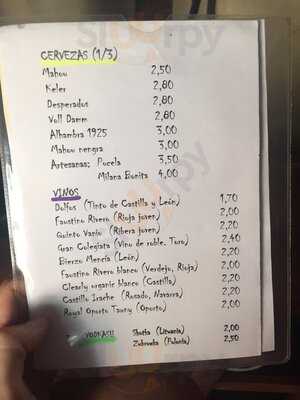 CERVEZAS (1/3)
Mahou 2,50
Keler 2,80
Desperados 2,80
Voll Damm 2,80
Alhambra 1925 3,00
Mahou nengra 3,00
Artesanas: Pocela 3,50
Milana Bonita 4,00
VINOS
Dolfos (Tinto de Castilla y León) 1,70
Faustino Rivero (Rioja joven) 2,00
Quinto Vanio (Ribera joven) 2,20
Gran Colegiata (Vino de roble. Toro) 2,40
Bierzo Mencía (León) 2,20
Faustino Rivero blanco (Verdejo, Rioja) 2,00
Clearly organic blanco (Castilla) 2,20
Castillo Irache (Rosado, Navarra) 2,20
Royal Oporto Tawny (Oporto) 2,00
VODKAS! (Lituania) 2,00
Zubrowka (Polonia) 2,50